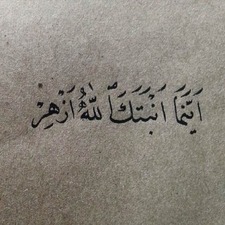 اَيَّنَمَا اَنْبَتَكَ اللهُ اَزْهِرْ